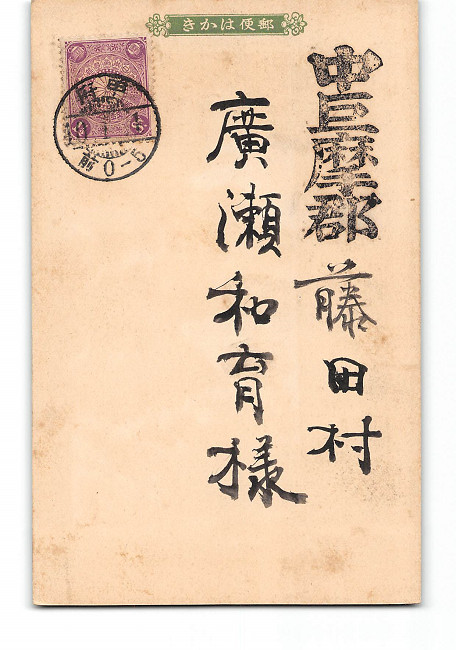 きかは便郵
中巨摩郡 藤田村
廣瀬和育様
前0-5